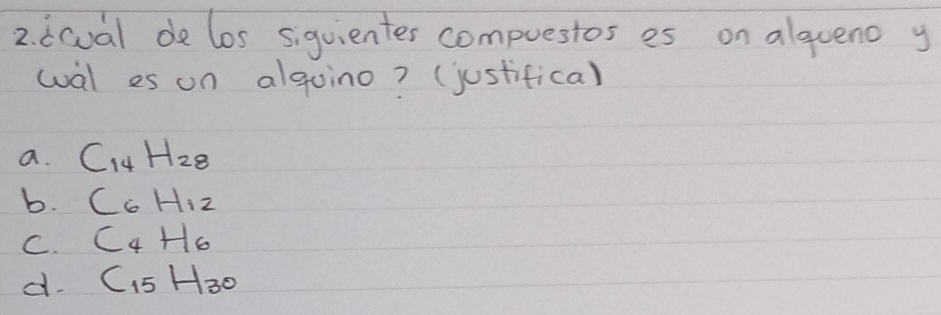 2. ¿cuál de los siguientes compuestos es on alqueno y
cuál es un alquino? (justifica)
a. C₁₄ H₂₈
b. C₆ H₁₂
c. C₄ H₆
d. C₁₅ H₃₀